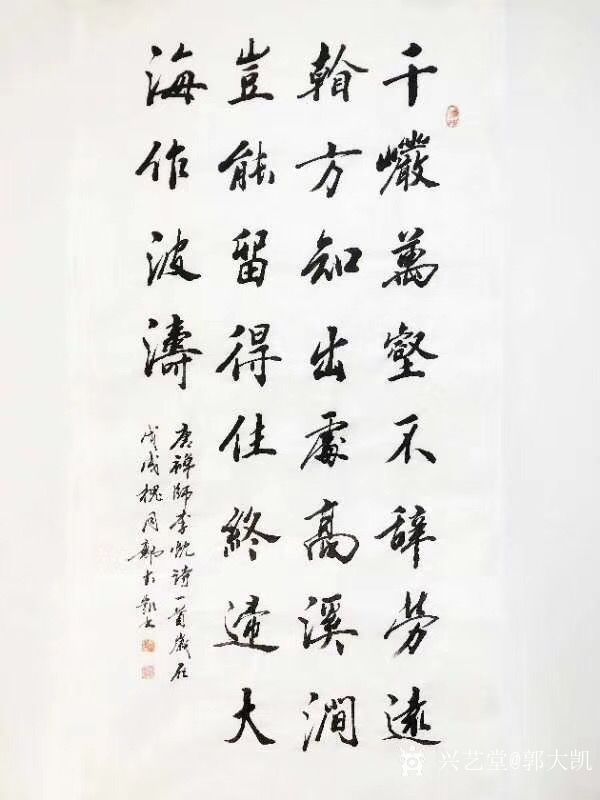 千巖萬壑不辞勞遠
看方知出處高溪澗
豈能留得住終歸大
海作波濤
唐禅師李忱詩一首歲在
戊戌槐月郭大凱书
兴艺堂@郭大凯